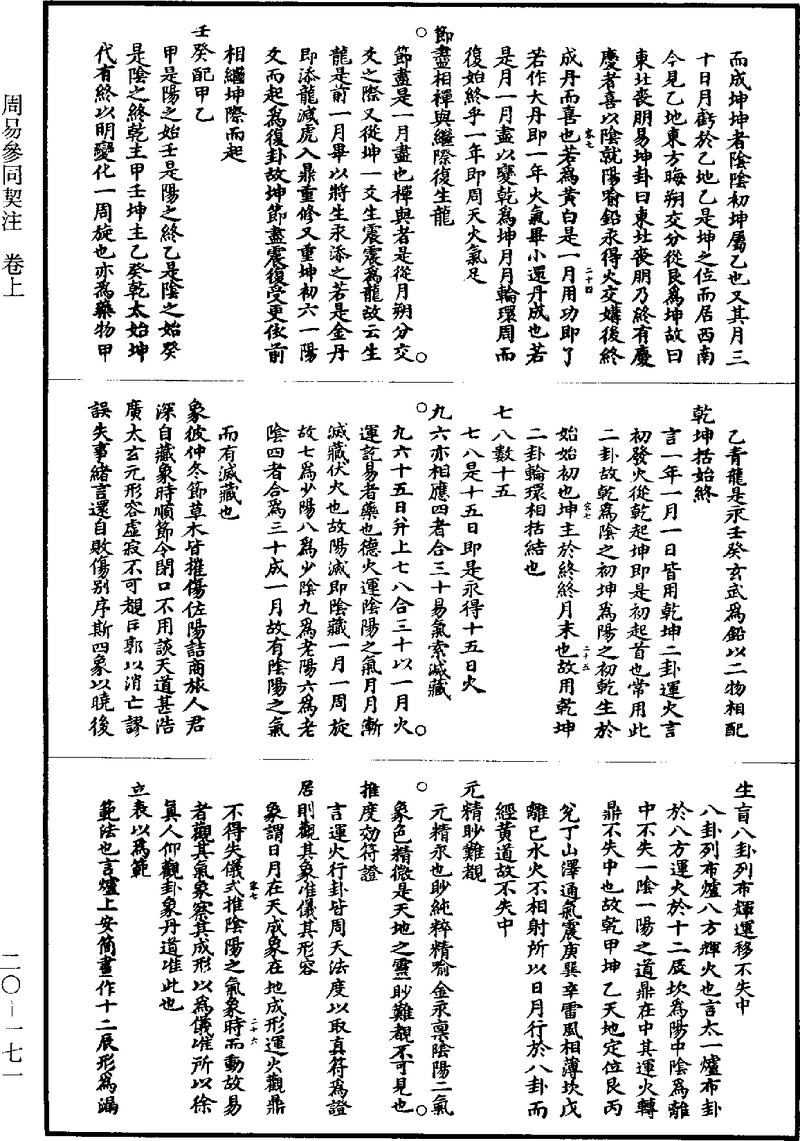 周易參同契注　卷上
二〇—一七一
而成坤坤者陰陰初坤屬乙也又其月三
十日月虧於乙地乙是坤之位而居西南
今見乙地東方晦朔交分從艮爲坤故曰
東北喪朋易坤卦曰東北喪朋乃終有慶
慶者喜以陰就陽喻鉛汞得火交媾後終
成丹而喜也若爲黃白是一月用功即了
若作大丹即一年火氣畢小還丹成也若
是月一月盡以變乾爲坤月月輪環周而
復始終乎一年即周天火氣足
節盡相禪與繼際復生龍
節盡是一月盡也禪與者是從月朔分交
爻之際又從坤一爻生震震爲龍故云生
龍是前一月畢以將生汞添之若是金丹
即添龍減虎入鼎重修又重坤初六一陽
爻而起爲復卦故坤節盡震復受更依前
相繼坤際而起
壬癸配甲乙
甲是陽之始壬是陽之終乙是陰之始癸
是陰之終乾主甲壬坤主乙癸乾太始坤
代有終以明變化一周旋也亦爲藥物甲
乙青龍是汞壬癸玄武爲鉛以二物相配
乾坤括始終
言一年一月一日皆用乾坤二卦運火言
初發火從乾起坤即是初起首也常用此
二卦故乾爲陰之初坤爲陽之初乾生於
始始初也坤主於終終月末也故用乾坤
二卦輪環相括結也
七八數十五
七八是十五日即是汞得十五日火
九六亦相應四者合三十易氣索滅藏
九六十五日并上七八合三十以一月火
運託易者藥也德火運陰陽之氣月月漸
滅藏伏火也故陽滅即陰藏一月一周旋
故七爲少陽八爲少陰九爲老陽六爲老
陰四者合爲三十成一月故有陰陽之氣
而有滅藏也
象彼仲冬節草木皆摧傷佐陽詰商旅人君
深自藏象時順節令閉口不用談天道甚浩
廣太玄元形容虛寂不可覩匡郭以消亡謬
誤失事緒言還自敗傷別序斯四象以曉後
生盲八卦列布輝運移不失中
八卦列布爐八方輝火也言太一爐布卦
於八方運火於十二辰坎爲陽中陰爲離
中不失一陰一陽之道鼎在中其運火轉
鼎不失中也故乾甲坤乙天地定位艮丙
兌丁山澤通氣震庚巽辛雷風相薄坎戊
離己水火不相射所以日月行於八卦而
經黃道故不失中
元精眇難覩
元精汞也眇純粹精喻金汞稟陰陽二氣
象色精微是天地之靈眇難覩不可見也
推度効符證
言運火行卦皆周天法度以取真符爲證
居則觀其象准儀其形容
象謂日月在天咸象在地成形運火觀鼎
不得失儀式推陰陽之氣象時而動故易
者觀其氣象察其成形以爲儀准所以徐
真人仰觀卦象丹道准此也
立表以爲範
範法也言爐上安簡畫作十二辰形爲漏